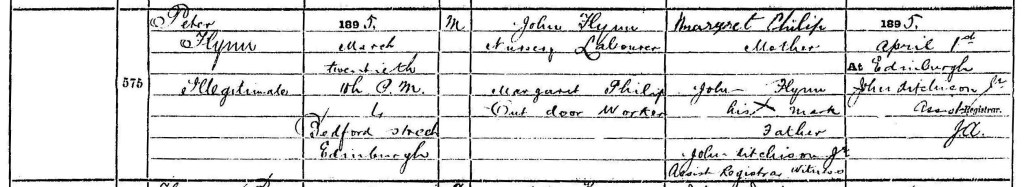 575
Peter
Flynn
Illegitimate
1895.
March
twentieth
10h P.M.
4
Bedford Street
Edinburgh
M
John Flynn
Nursery Labourer
Margaret Philip
Out door Worker
Margret Philip
Mother
John Flynn
his X mark
Father
John Aitchison Jr
Assist Registrar Witness
1895.
April 1st
At Edinburgh
John Aitchison Jr
Assist Registrar.
J.A.